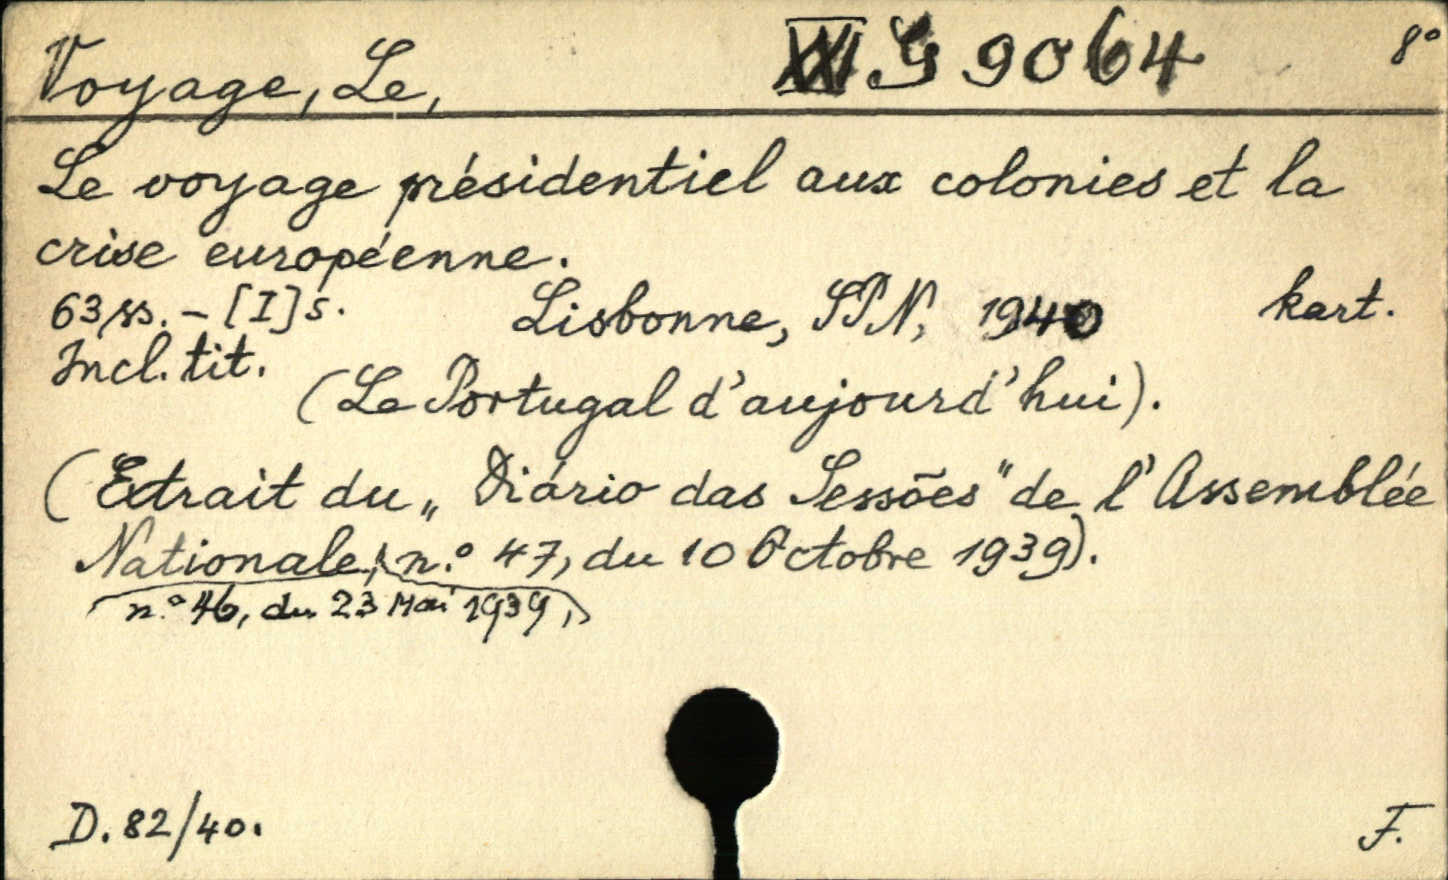 Voyage, Le, G 9064 8°
Le voyage présidentiel aux colonies et la
crise européenne.
63 ss. - [I] s. Lisbonne, SPN, 1940 kart.
Incl. tit.
(Le Portugal d'aujourd'hui).
(Extrait du „Diário das Sessões" de l'Assemblée
Nationale, n.° 47, du 10 Octobre 1939).
n.° 46, du 23 Mai 1939,
D. 82/40. F.